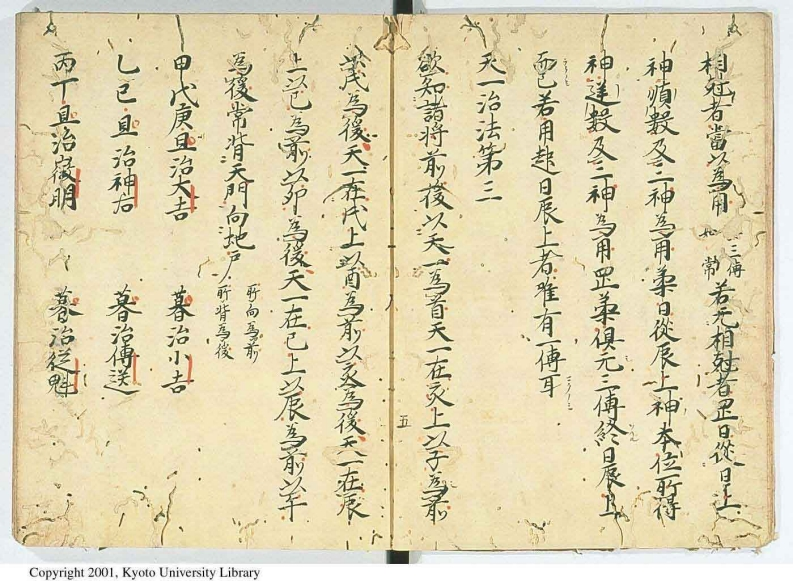 相尅者當以為用 三傳如常 若无相尅者罡日從日上
神順數及二神為用 柔日從辰上神本位所得
神逆數及二神為用罡柔俱无三傳終日辰上
而已若用起日辰上者唯有一傳耳
天一治法第三
欲知諸將前後以天一為首天一在亥上以子為前
以戌為後天一在戌上以酉為前以亥為後天一在辰
上以巳為前以卯為後天一在巳上以辰為前以午
為後常背天門向地戶 所向為前所背為後
甲戊庚旦治大吉 暮治小吉
乙己旦治神后 暮治傳送
丙丁旦治徵明 暮治從魁
五
Copyright 2001, Kyoto University Library